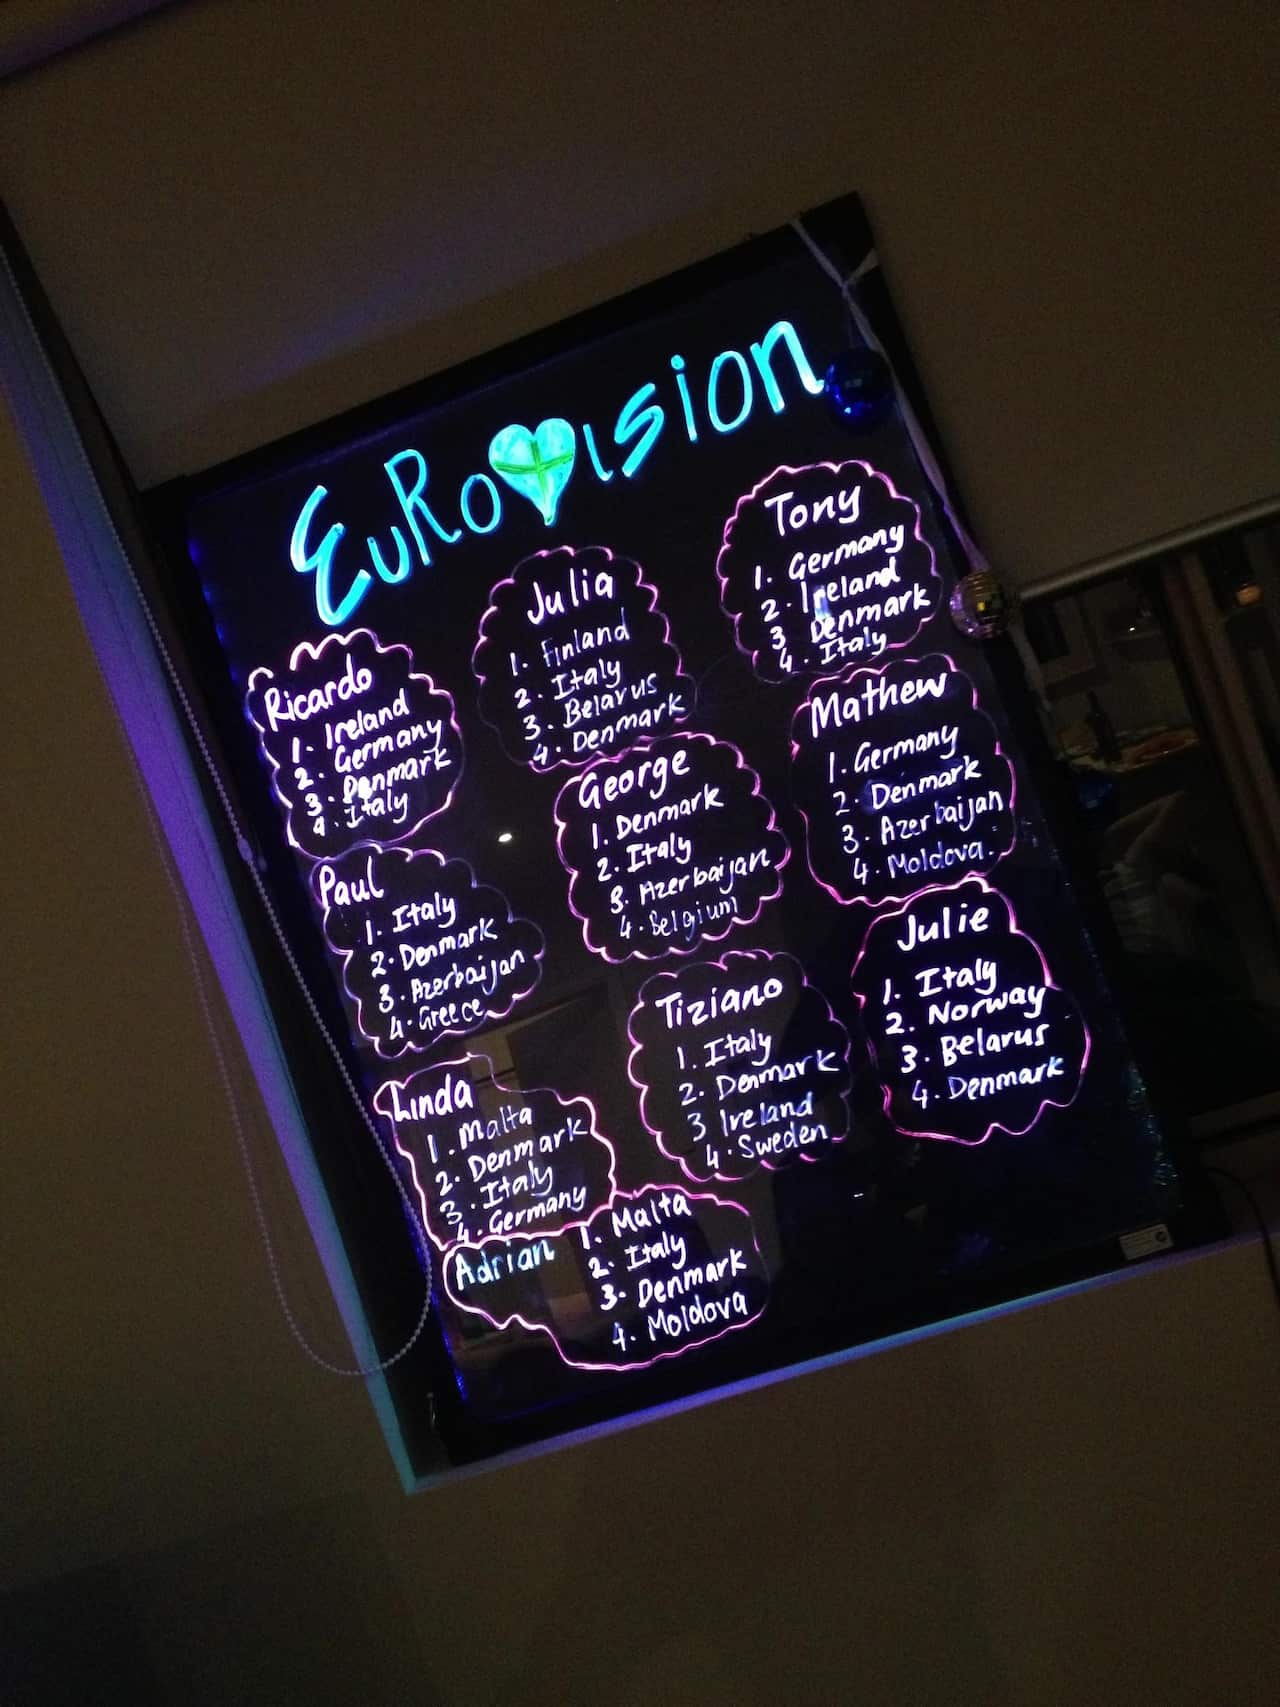 Eurovision
Ricardo
1. Ireland
2. Germany
3. Denmark
4. Italy
Julia
1. Finland
2. Italy
3. Belarus
4. Denmark
Tony
1. Germany
2. Ireland
3 Denmark
4. Italy
Paul
1. Italy
2. Denmark
3. Azerbaijan
4. Greece
George
1. Denmark
2. Italy
3. Azerbaijan
4. Belgium
Mathew
1. Germany
2. Denmark
3. Azerbaijan
4. Moldova.
Linda
1. Malta
2. Denmark
3. Italy
4. Germany
Tiziano
1. Italy
2. Denmark
3 Ireland
4. Sweden
Julie
1. Italy
2. Norway
3. Belarus
4. Denmark
Adrian
1. Malta
2. Italy
3. Denmark
4. Moldova